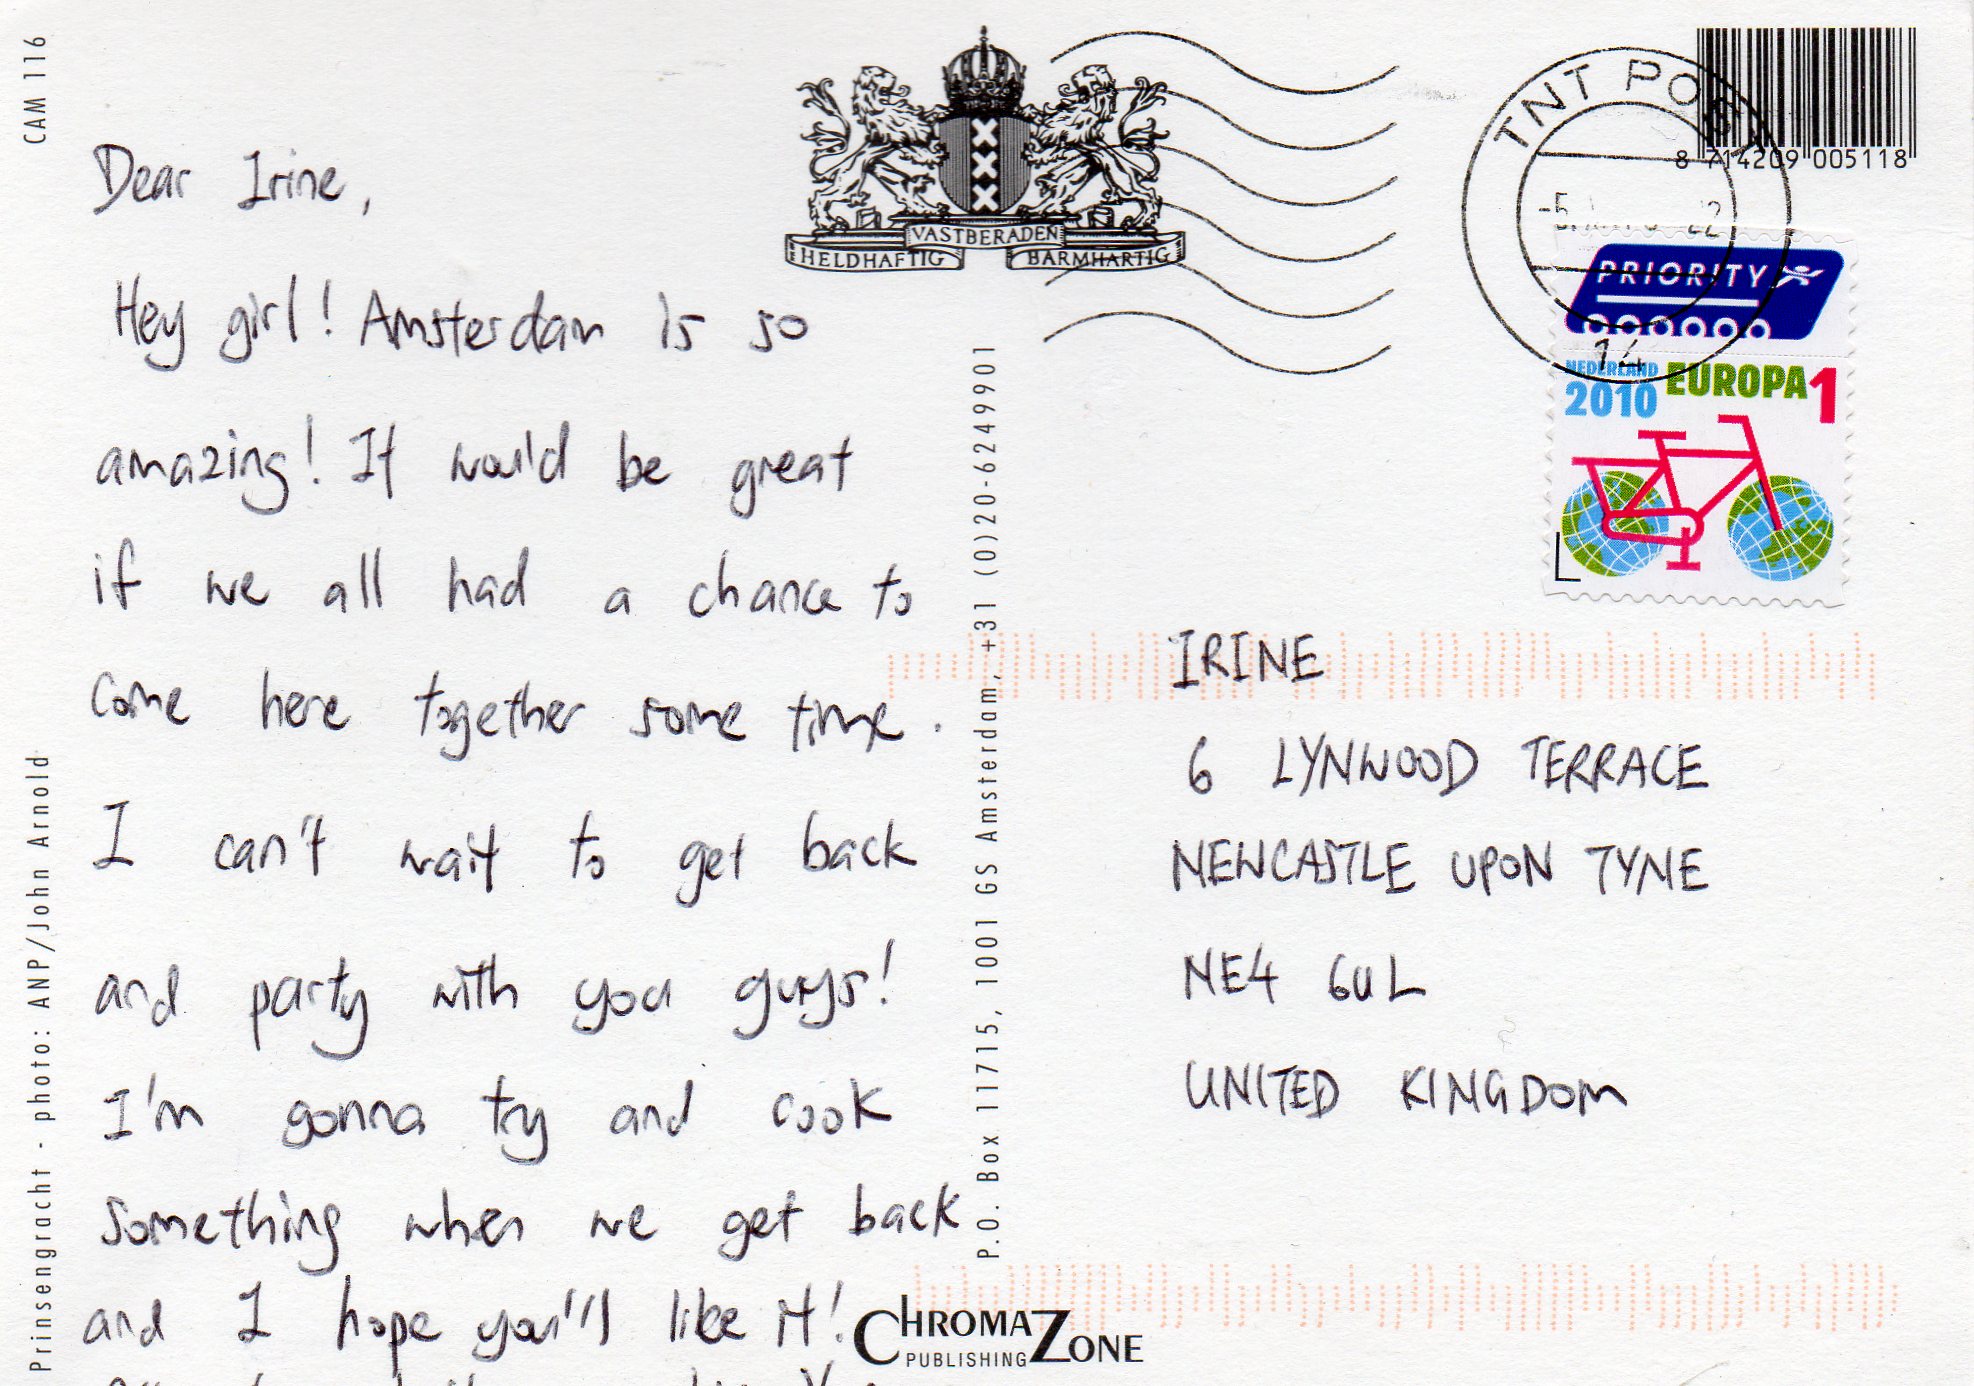 CAM 116
Prinsengracht · photo: ANP/John Arnold
Dear Irine,
Hey girl! Amsterdam is so
amazing! It would be great
if we all had a chance to
come here together some time.
I can't wait to get back
and party with you guys!
I'm gonna try and cook
something when we get back
and I hope you'll like it!
VASTBERADEN
HELDHAFTIG BARMHARTIG
P.O. Box 11715, 1001 GS Amsterdam, +31 (0)20-6249901
CHROMAZONE
PUBLISHING
TNT POST
14
8 714209 005118
PRIORITY
NEDERLAND
2010
EUROPA 1
IRINE
6 LYNWOOD TERRACE
NEWCASTLE UPON TYNE
NE4 6UL
UNITED KINGDOM